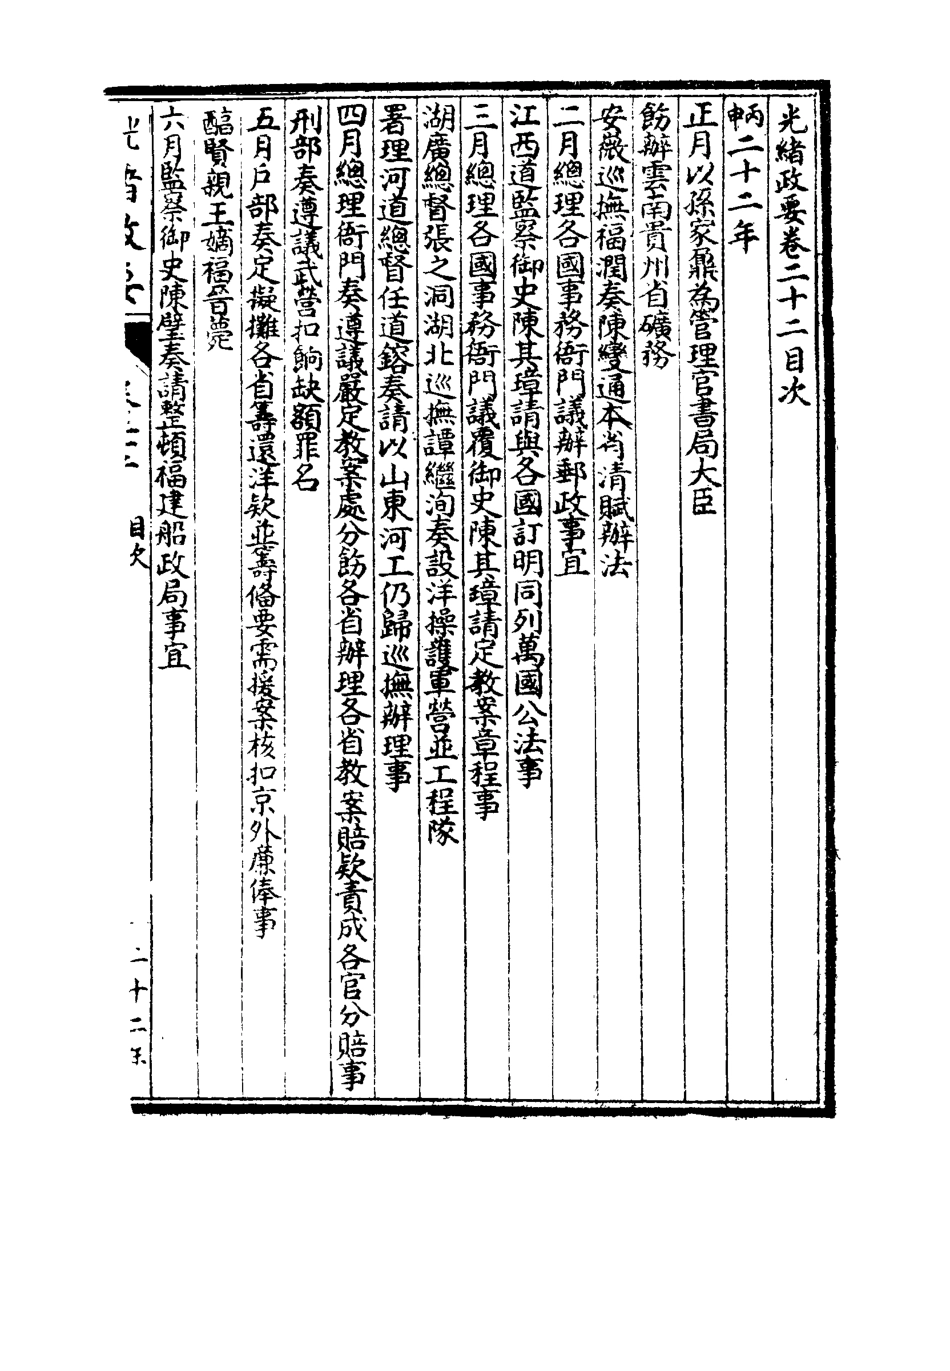 光緒政要卷二十二目次
丙申二十二年
正月以孫家鼐為管理官書局大臣
飭辦雲南貴州省礦務
安徽巡撫福潤奏陳變通本省清賦辦法
二月總理各國事務衙門議辦郵政事宜
江西道監察御史陳其璋請與各國訂明同列萬國公法事
三月總理各國事務衙門議覆御史陳其璋請定教案章程事
湖廣總督張之洞湖北巡撫譚繼洵奏設洋操護軍營並工程隊
署理河道總督任道鎔奏請以山東河工仍歸巡撫辦理事
四月總理衙門奏遵議嚴定教案處分飭各省辦理各省教案賠欵責成各官分賠事
刑部奏遵議武營扣餉缺額罪名
五月戶部奏定擬攤各省籌還洋欵並籌備要需援案核扣京外廉俸事
醕賢親王嫡福晉薨
六月監察御史陳璧奏請整頓福建船政局事宜
目次
二十二